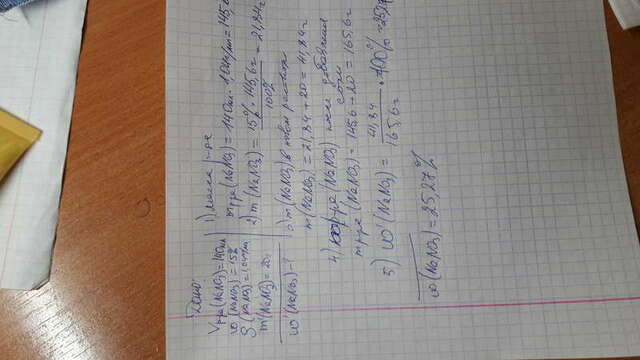 Дано:
Vр-ра(NaNO₃)=140мл
ω(NaNO₃)=15%
m'(NaNO₃)=20г
ω'(NaNO₃)-?
1) масса р-ра
mр-ра(NaNO₃)=140мл·1,04г/мл=145,6
2) m(NaNO₃)=15%·145,6г/100%=21,84г
3) m(NaNO₃) в растворе
m(NaNO₃)=21,84+20=41,84г
4) р-ра(NaNO₃) после добавления соли
mр-ра(NaNO₃)=145,6+20=165,6г
5) ω'(NaNO₃)=41,84/165,6г·100%=25,27
ω(NaNO₃)=25,27%